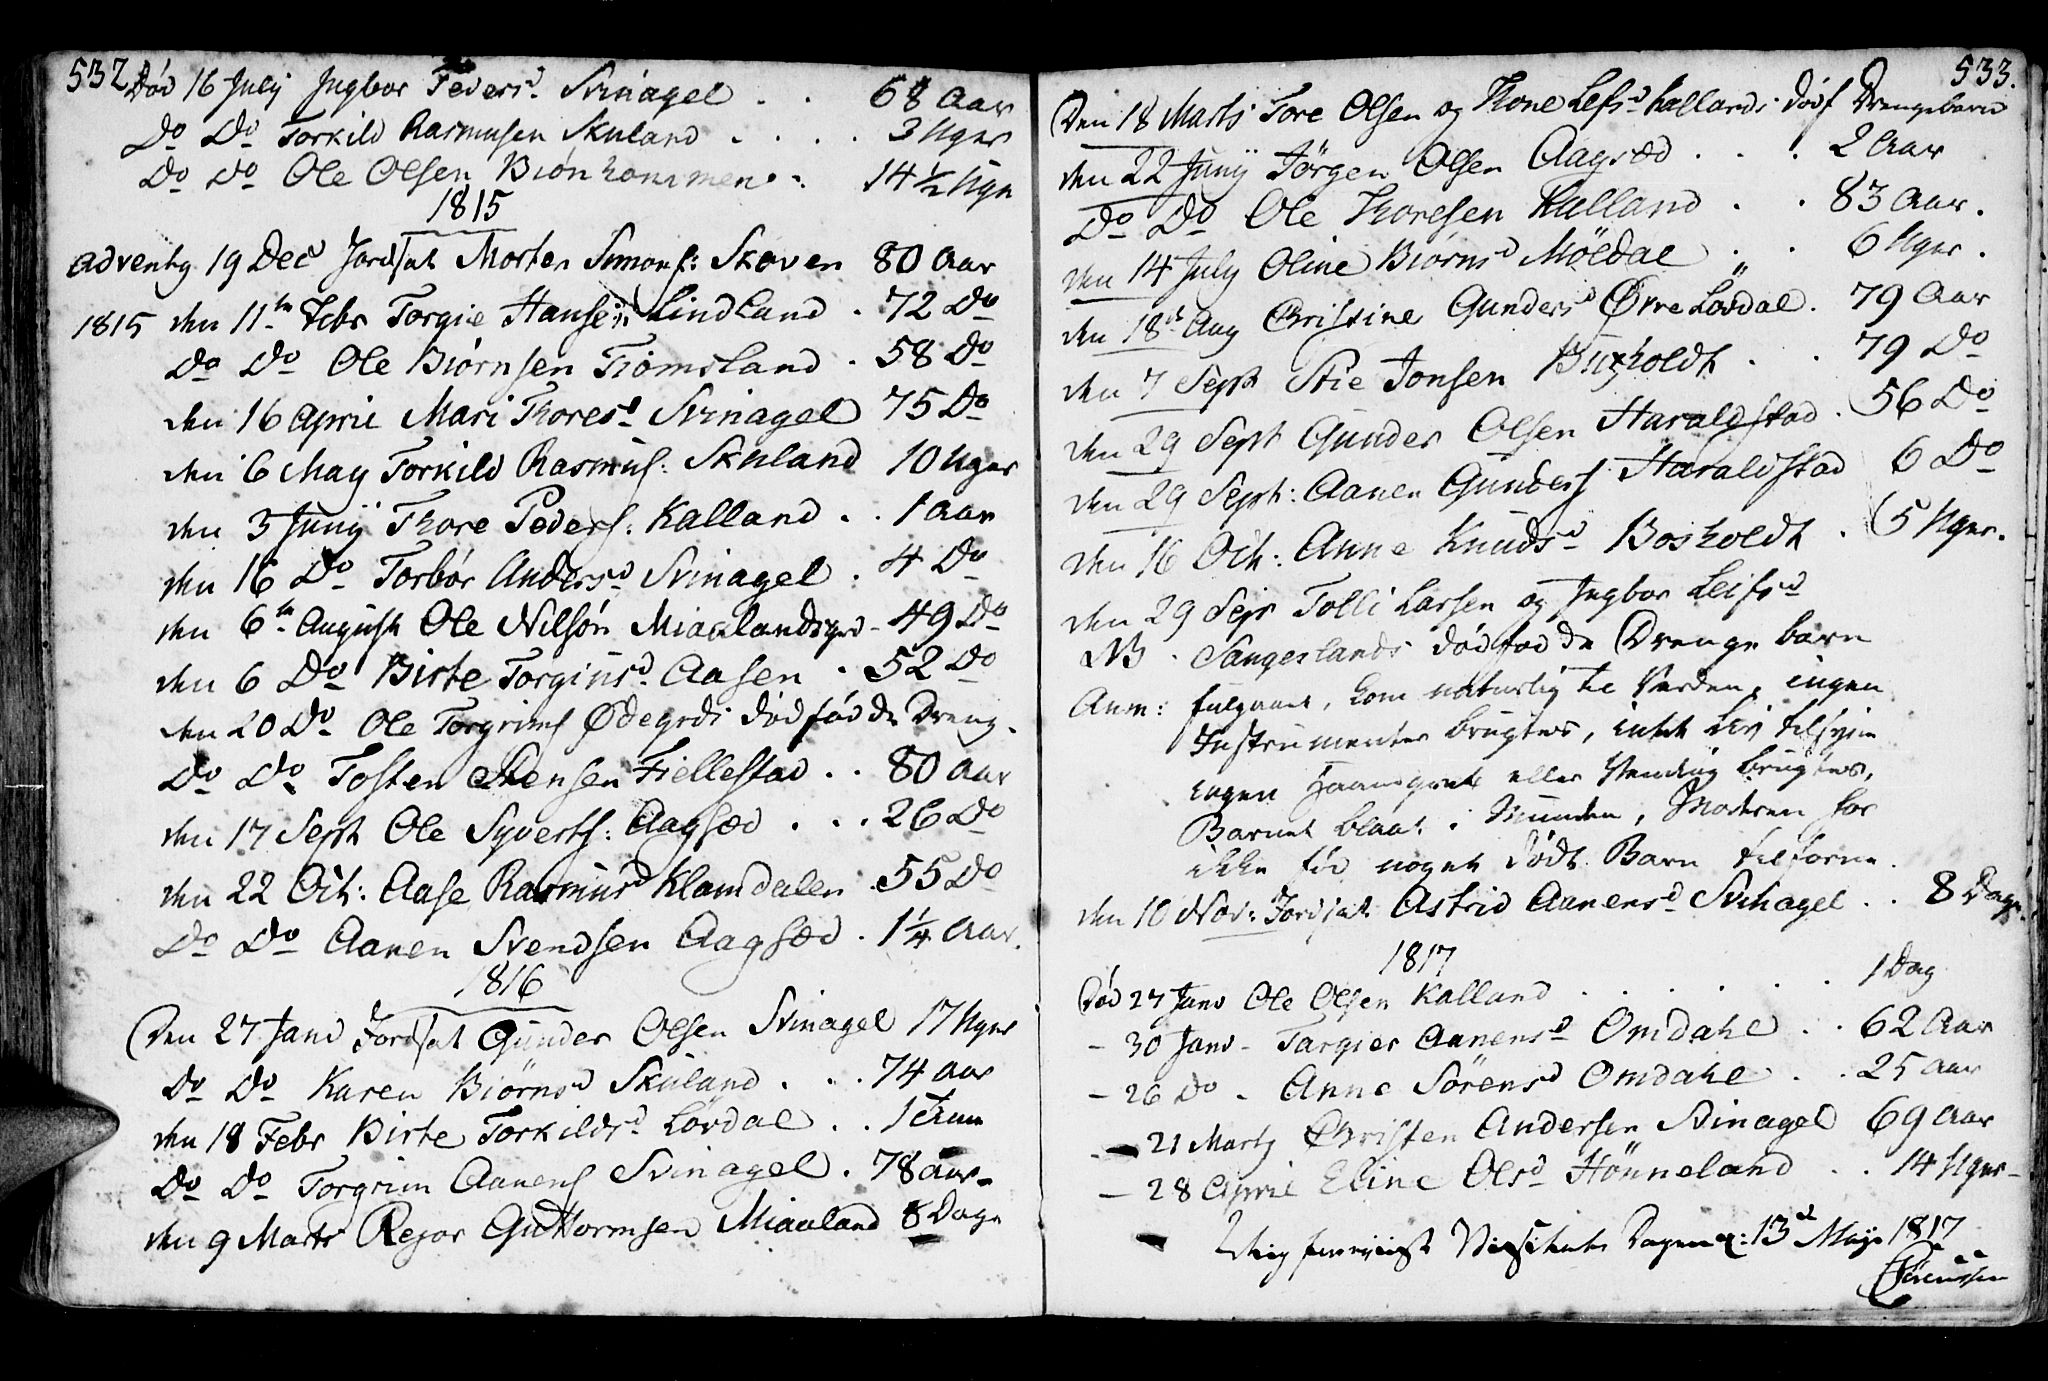 532
Død 16 July Ingbor Peders.d Svinagel . . 68 Aar
Do Do Torkild Rasmusen Skuland . . . . 3 Uger
Do Do Ole Olsen Biønkommen . . 14 ½ Uge
1815
adventg 19 Decb Jordsat Morten Simons: Skoven 80 Aar
1815 den 11te Febr Torgie Hansen Lindland . 72 Do
Do Do Ole Biørnsen Tiomsland . 58 Do
den 16 April Mari Thoresd Svinagel 75 Do
den 6 May Torkild Rasmus: Skuland 10 Uger
den 3 Junij Thore Peders: Kalland . . 1 Aar
den 16 Do Torbør Andersd Svinagel . 4 Do
den 6te August Ole Nilsøn Mialandsgrd - 49 Do
den 6 Do Birte Torgiusd Aasen . 52 Do
den 20 Do Ole Torgrims Ødegrds dødfødde Dreng .
Do Do Tosten Stensen Fiellestad . . 80 aar
den 17 Sept Ole Syverts: Aagsæd . . . 26 Do
den 22 Oct: Aase Rasmusd Klamdalen . 55 Do
Do Do Aanen Svendsen Aagsæd . 1 ¼ Aar.
1816
Den 27 Janv Jordsat Gunder Olsen Svinagel 17 Uger
Do Do Karen Biørnsd Skuland . . . 74 aar
den 18 Febr Birte Torkildsd Løvdal . . 1
Do Do Torgrim Aanens Svinagel . 78 aar
den 9 Marts Rejor Guttormsen Mialand 8 Dage
533.
Den 18 Marts Tore Olsen og Thone Lefsd Kallands dødf Drengebarn
den 22 Junij Jørgen Olsen Aagsæd . . . 2 Aar
Do Do Ole Thoresen Kalland . . 83 Aar .
den 14 July Oline Biørnsd Møldal . . 6 Uger .
den 18de Aug Christine Gundersd Øvre Løvdal . 79 Aar
den 7 Sept Stie Jonsen Buxholdt . . 79 Do
den 29 Sept Gunder Olsen Haraldstad . 56 Do
den 29 Sept: Aanen Gunders Haraldstad 6 Do
den 16 Oct: Anne Knudsd Bosholdt . 5 Uger.
den 29 Sept Tolli Larsen og Ingbor Leifsd
NB . Sangeslands dødfødde Drengebarn
Anm: fulgaaet, kom naturlig til Verden, ingen
Instrumenter brugtes, intet Liv tilsyne
ingen Haandgreb eller Vending brugtes,
Barnet blaat i Munden, Moderen har
ikke fød noget dødt Barn tilforne .
den 10 Nov: Jordsat Astrid Aanensd Svinagel . . 8 Dage
1817
Død 27 Janv Ole Olsen Kalland . . . . . . 1 Dag
- 30 Janv - Targier Aanensd Omdahl . . 62 Aar
- 26 Do . Anne Sørensd Omdahl . . 25 Aar
- 21 Marts Christen Andersen Svinagel 69 Aar
- 28 April Eline Olsd Hønneland . . 14 Uger -
Visitats Dagen d: 13d Maji 1817
Sørenssen